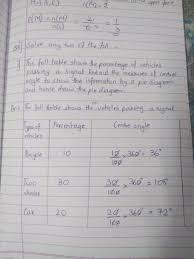 n(S) = 6
P(A) = n(A) = 2 = 1
n(S) 6 3
Solve any two of the foll
The foll table shows the percentage of vehicles
passing a signal
the measures of central
angle to show the information by a pie diagram
and hence draw the pie diagram
The foll table shows the vehicles passing a signal
Type of Percentage Centre angle
vehicles
Bicycle 10 10/100 × 360° = 36°
Two 30 30/100 × 360° = 108°
wheeler
Car 20 20/100 × 360° = 72°